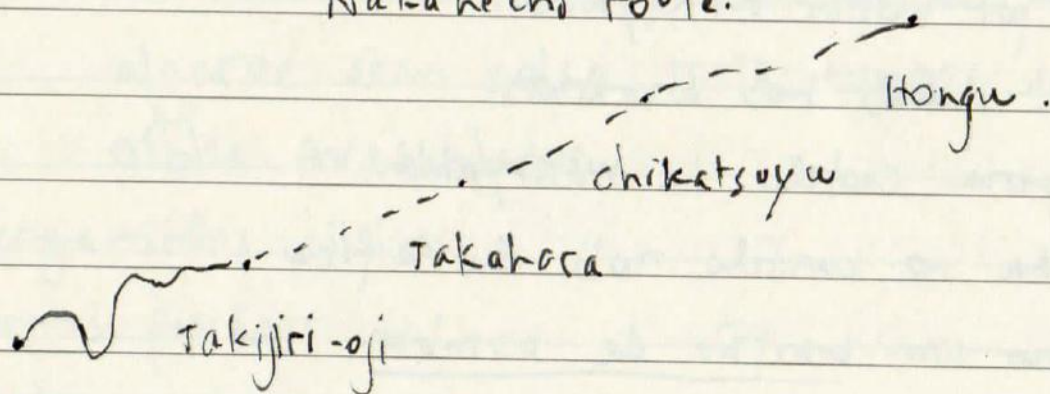 Nakahechi route.
Hongu.
Chikatsuyu
Takahara
Takijiri-oji